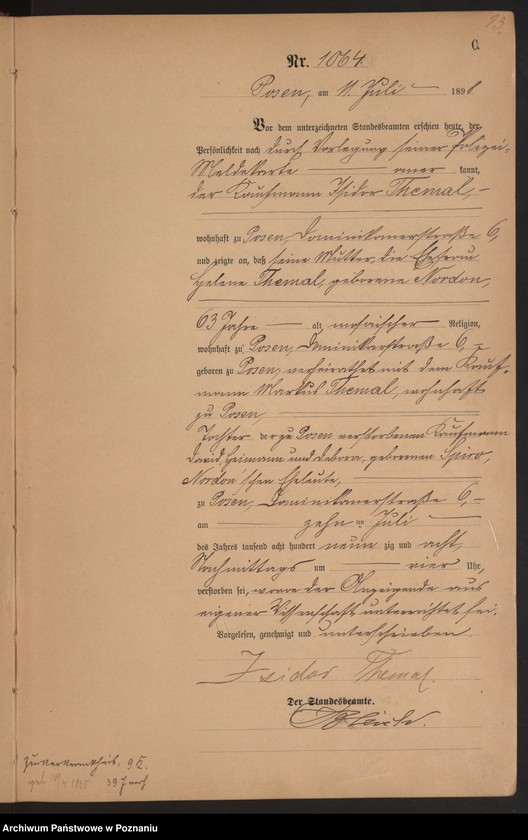 93
C.
Nr. 1064
Posen, am 11. Juli 1898
Vor dem unterzeichneten Standesbeamten erschien heute, der
Persönlichkeit nach durch Vorlegung seiner Polizei-
Meldekarte anerkannt,
der Kaufmann Isidor Themal,
wohnhaft zu Posen, Dominikanerstraße 6,
und zeigte an, daß seine Mutter, die Ehefrau
Helene Themal, geborene Nordon,
63 Jahre alt, mosaischer Religion,
wohnhaft zu Posen, Dominikanerstraße 6,
geboren zu Posen, verheirathet mit dem Kauf-
mann Markus Themal, wohnhaft
zu Posen,
Tochter der zu Posen verstorbenen Kaufmann
David Heimann und Debora, geborenen Spiro,
Nordon'schen Eheleute,
zu Posen, Dominikanerstraße 6,
am zehn ten Juli
des Jahres tausend acht hundert neun zig und acht,
Nachmittags um vier Uhr,
verstorben sei, wovon der Anzeigende aus
eigener Wissenschaft unterrichtet sei.
Vorgelesen, genehmigt und unterschrieben.
Isidor Themal.
Der Standesbeamte.
39 Posen
Archiwum Państwowe w Poznaniu